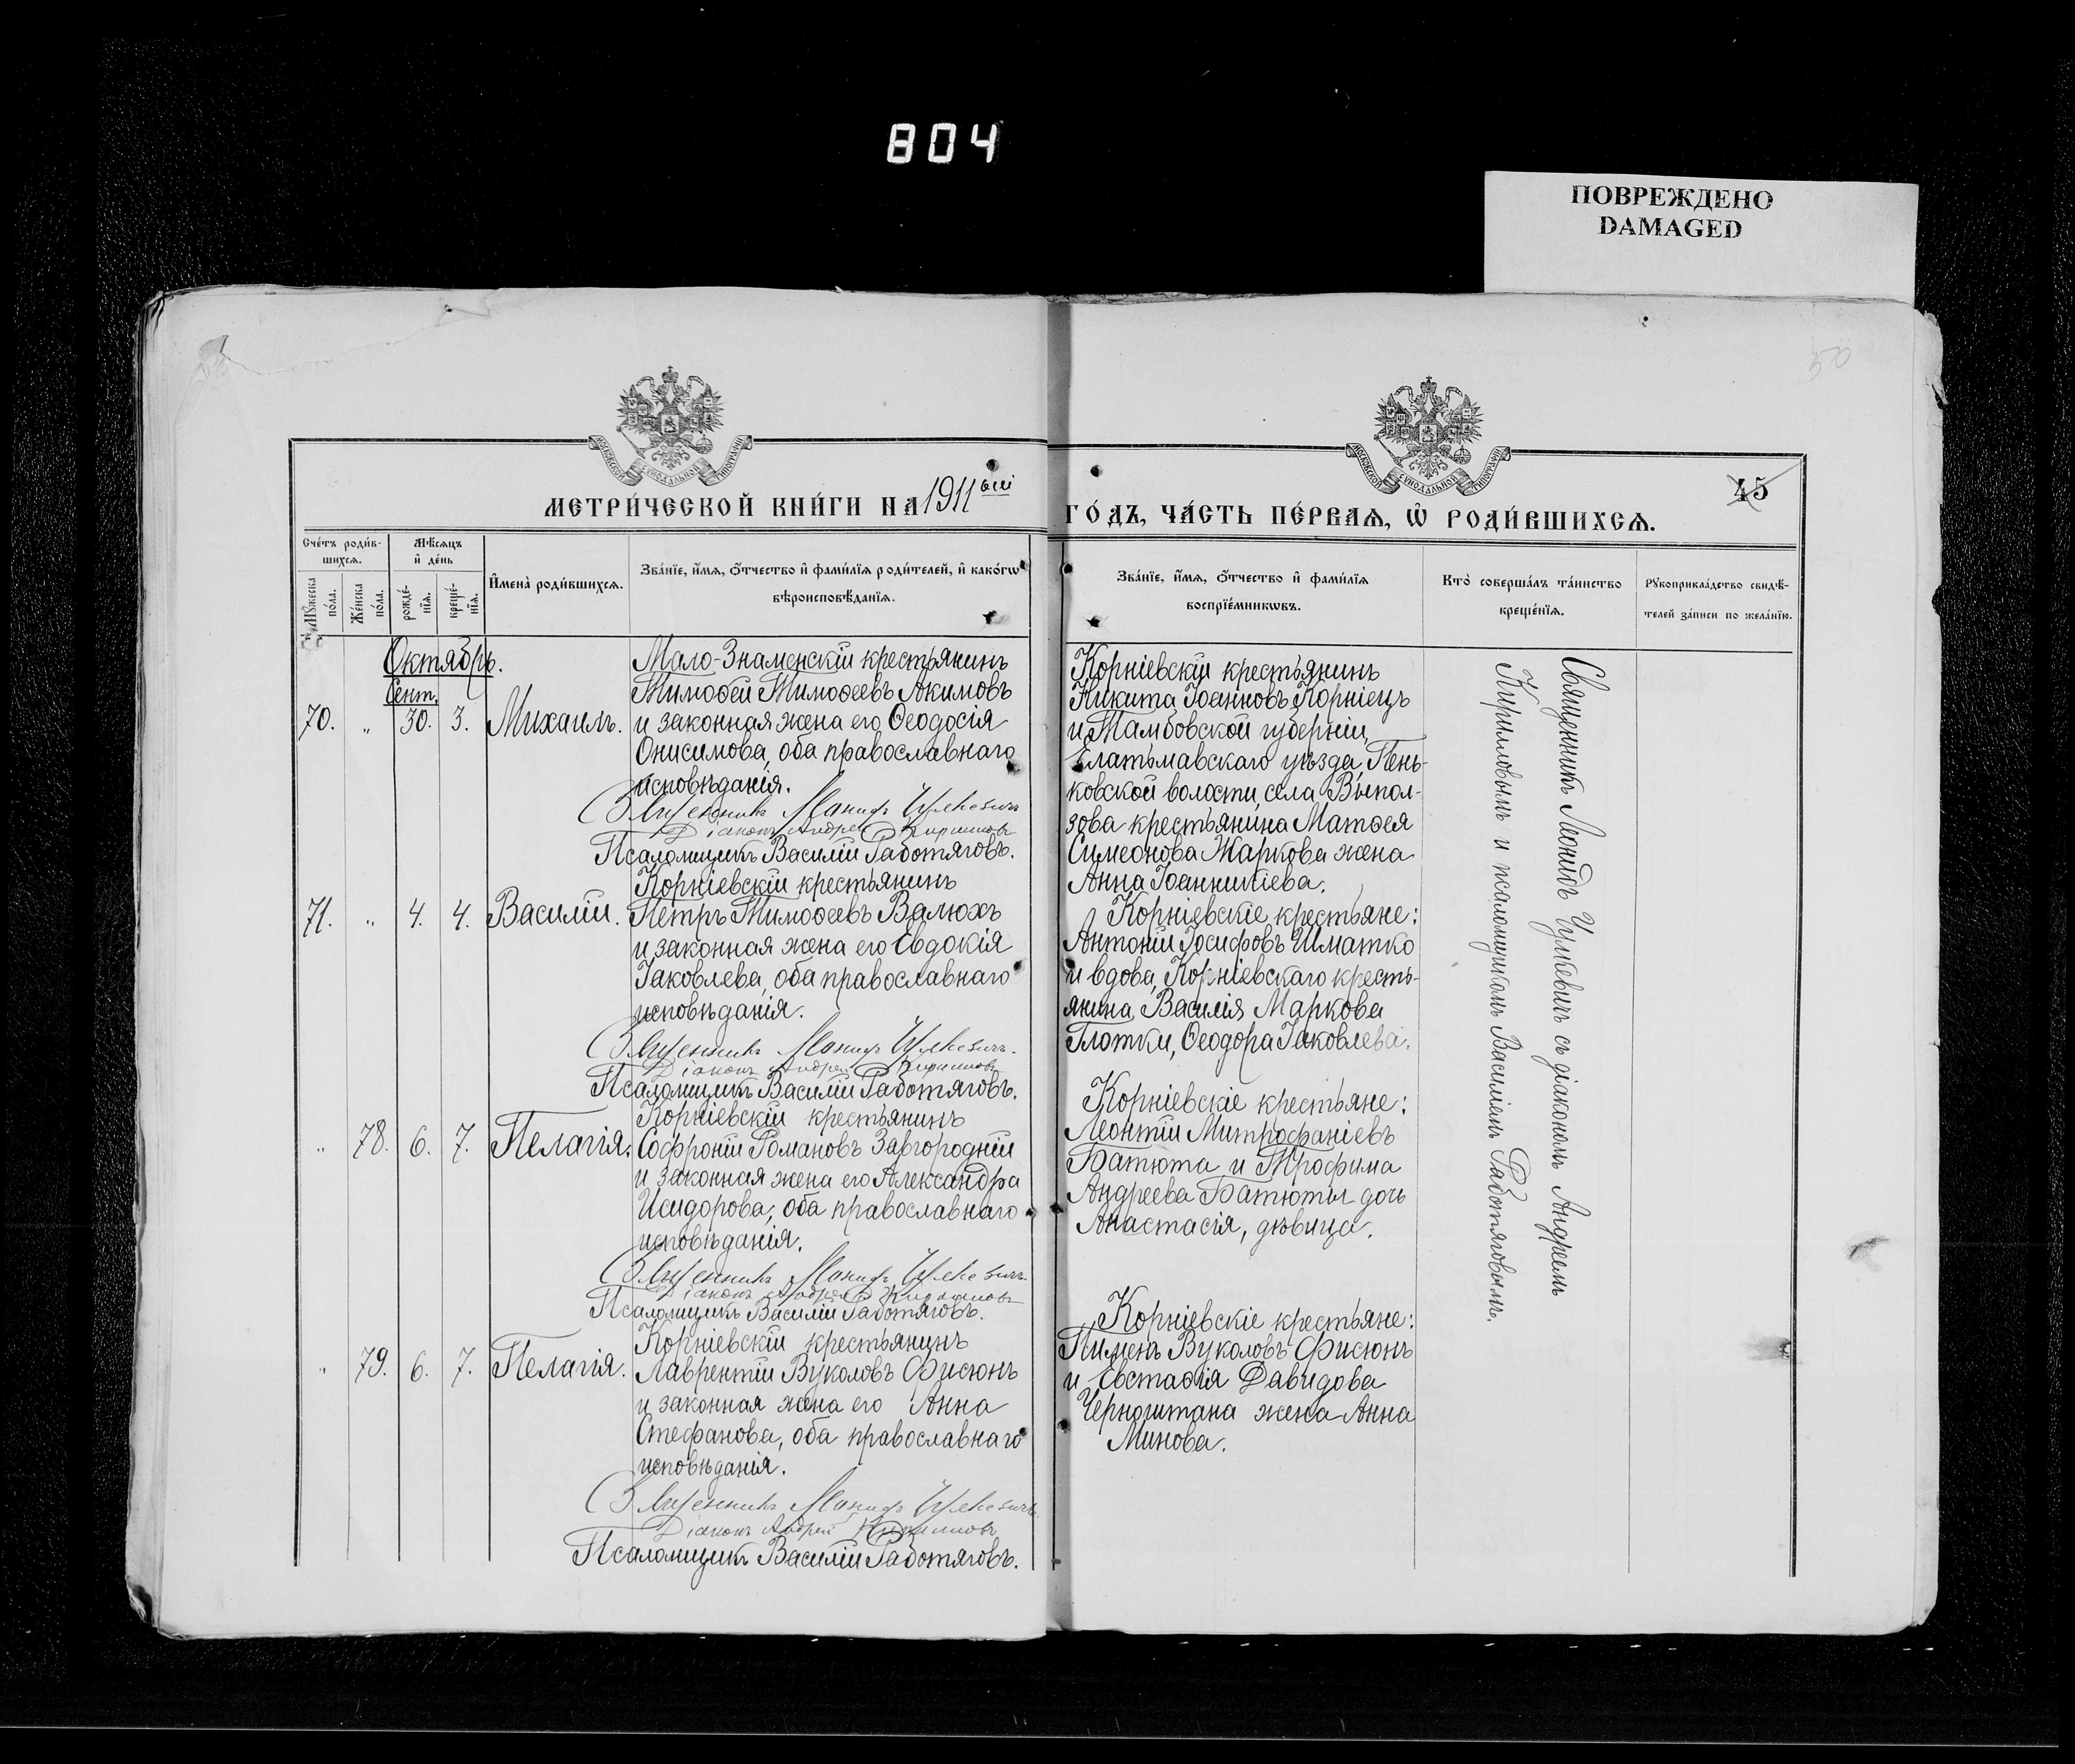 804
ПОВРЕЖДЕНО
DAMAGED
50
МОСКОВСКОЙ СѴНОДАЛЬНОЙ ТИПОГРАФІИ
МОСКОВСКОЙ СѴНОДАЛЬНОЙ ТИПОГРАФІИ
45
МЕТРИ́ЧЕСКОЙ КНИ́ГИ НА 1911 ый
ГО́ДЪ, ЧА́СТЬ ПЕ́РВАѦ, Ѡ҆ РОДИ́ВШИХСѦ.
Сче́тъ роди́в-
шихсѧ.
Мѣ́сѧцъ
и҆ де́нь
Мꙋ́жеска
по́ла.
Же́нска
по́ла.
рожде́-
нїѧ.
креще́-
нїѧ.
И҆мена̀ роди́вшихсѧ.
Зва́нїе, и҆́мѧ, ѻ҆́тчество и҆ фами́лїѧ роди́телей, и҆ како́гѡ
вѣроисповѣ́данїѧ.
Зва́нїе, и҆́мѧ, ѻ҆́тчество и҆ фами́лїѧ
воспрїе́мникѡвъ.
Кто̀ соверша́лъ та́инство
креще́нїѧ.
Рꙋкоприкла́дство свидѣ́-
телей за́писи по жела́нїю.
Октябрь.
Сент.
70. „ 30. 3. Михаилъ.
Мало-Знаменскій крестьянинъ
Тимоѳей Тимоѳеевъ Акимовъ
и законная жена его Ѳеодосія
Онисимова, оба православнаго
исповѣданія.
Священникъ Леонидъ Чулкевичъ
Діаконъ Андрей Кирилловъ
Псаломщикъ Василій Работяговъ.
Корніевскій крестьянинъ
Никита Іоанновъ Корніецъ
и Тамбовской губерніи,
Елатьмавскаго уѣзда, Пень-
ковской волости, села Выпол-
зова крестьянина Матѳея
Симеонова Жаркова жена
Анна Іоанникіева.
71. „ 4. 4. Василій.
Корніевскій крестьянинъ
Петръ Тимоѳеевъ Валюхъ
и законная жена его Евдокія
Іаковлева, оба православнаго
исповѣданія.
Священникъ Леонидъ Чулкевичъ.
Діаконъ Андрей Кирилловъ
Псаломщикъ Василій Работяговъ.
Корніевскіе крестьяне:
Антоній Іосифовъ Шматко
и вдова, Корніевскаго кресть-
янина Василія Маркова
Глотки, Ѳеодора Іаковлева.
„ 78. 6. 7. Пелагія.
Корніевскій крестьянинъ
Софроній Романовъ Завгородній
и законная жена его Александра
Исидорова, оба православнаго
исповѣданія.
Священникъ Леонидъ Чулкевичъ.
Діаконъ Андрей Кирилловъ
Псаломщикъ Василій Работяговъ.
Корніевскіе крестьяне:
Леонтій Митрофаніевъ
Батюта и Трофима
Андреева Батюты дочь
Анастасія, дѣвица.
„ 79. 6. 7. Пелагія.
Корніевскій крестьянинъ
Лаврентій Вуколовъ Фисюнъ
и законная жена его Анна
Стефанова, оба православнаго
исповѣданія.
Священникъ Леонидъ Чулкевичъ.
Діаконъ Андрей Кирилловъ
Псаломщикъ Василій Работяговъ.
Корніевскіе крестьяне:
Пименъ Вуколовъ Фисюнъ
и Евстаѳія Давидова
Черноштана жена Анна
Минова.
Священникъ Леонидъ Чулкевичъ съ діакономъ Андреемъ
Кирилловымъ и псаломщикомъ Василіемъ Работяговымъ.